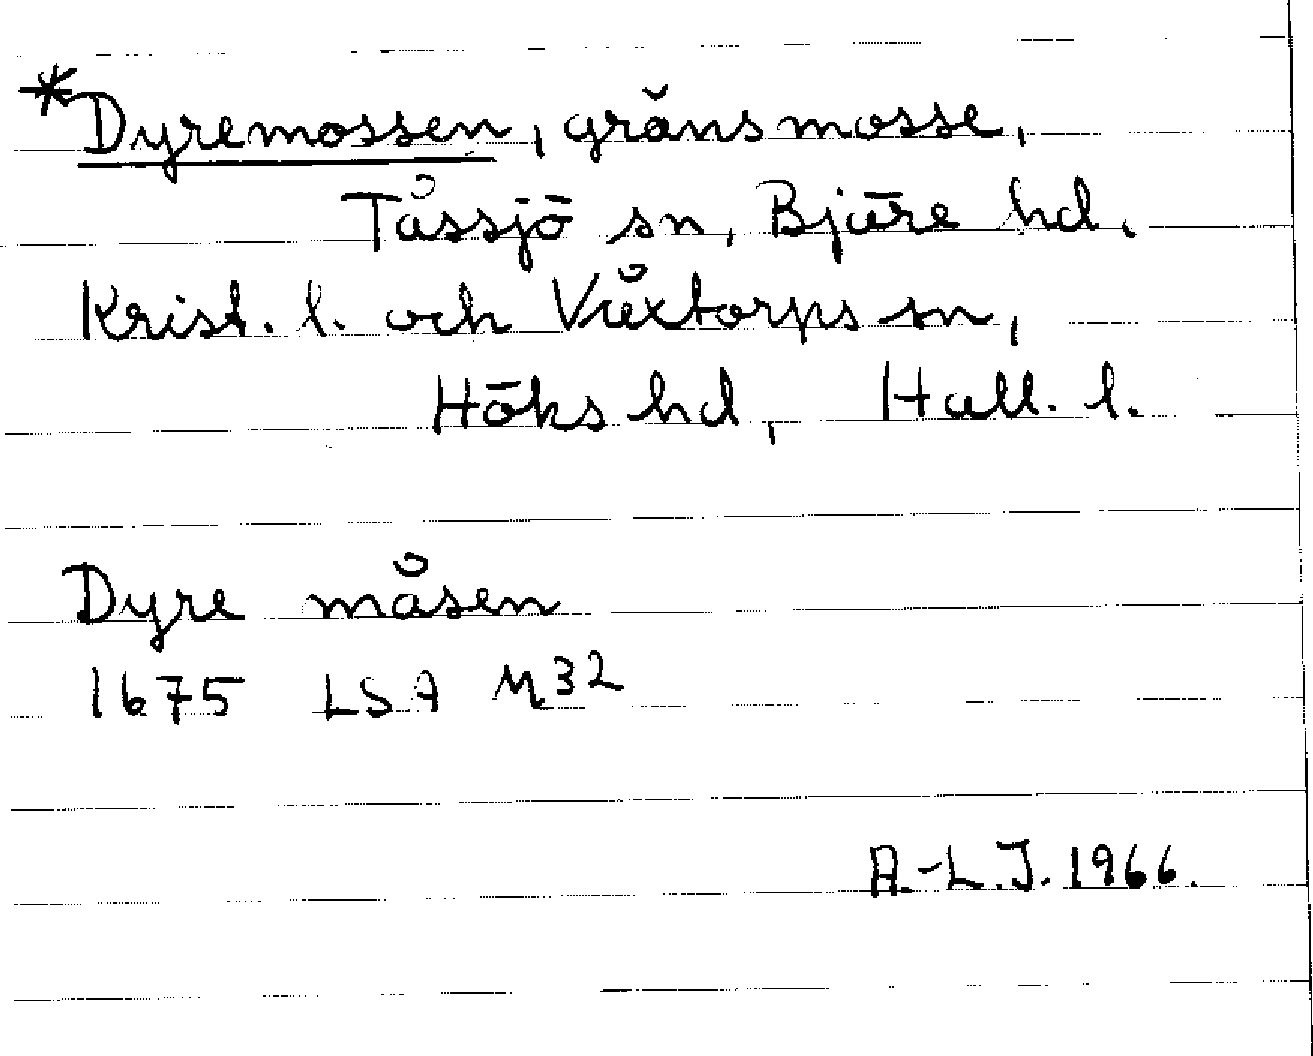 *Dyremossen, gränsmosse,
Tåssjö sn, Bjäre hd.
Krist. l. och Växtorps sn,
Höks hd, Hall. l.
Dyre måsen
1675 LSA M32
A.-L.J. 1966.